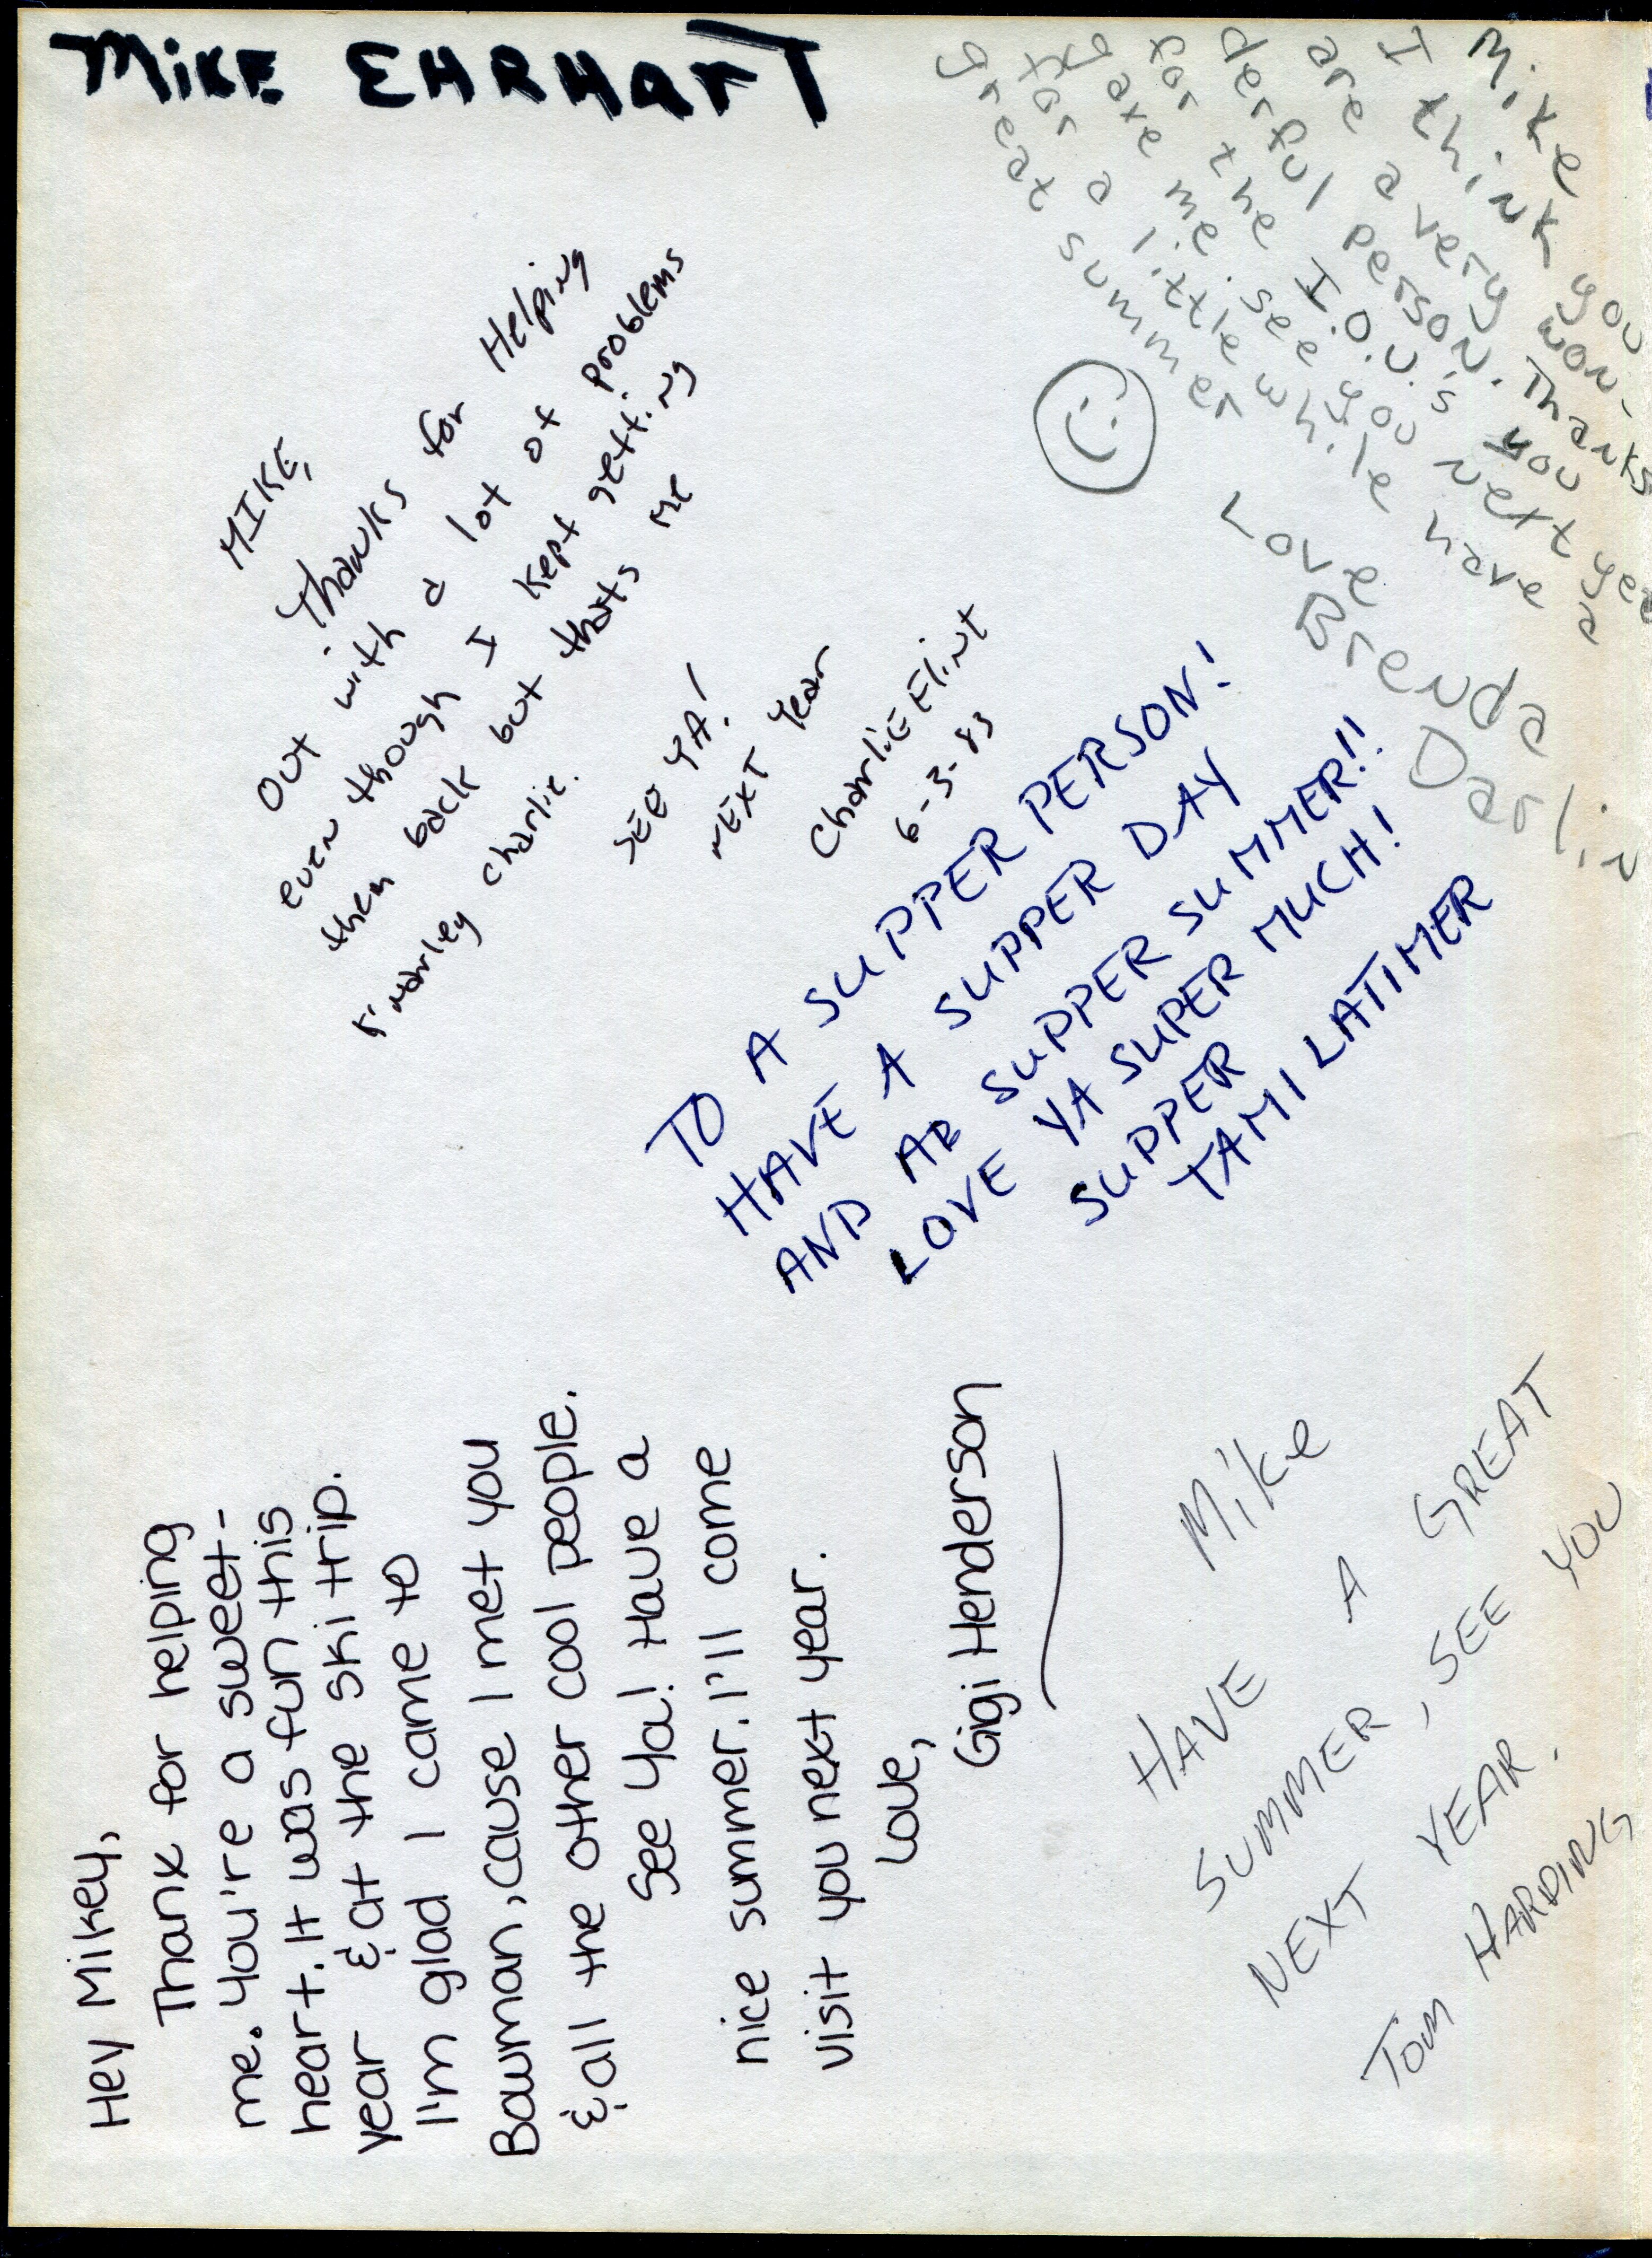 MIKE EHRHART
Mike
I think you
are a very won-
derful person. Thanks
for the I.O.U.s you
gave me. see you next yea
for a little while have a
great summer
Love
Brenda
Darlin
MIKE,
Thanks for Helping
out with a lot of problems
even though I kept getting
them back but thats me
charlie.
SEE YA!
NEXT Year
CharliE Flint
6-3-83
TO A SUPPER PERSON!
HAVE A SUPPER DAY
AND A SUPPER SUMMER!!
LOVE YA SUPER MUCH!
SUPPER
TAMI LATIMER
Hey Mikey,
Thanx for helping
me. You're a sweet-
heart. It was fun this
year & at the ski trip.
I'm glad I came to
Bowman, cause I met you
& all the other cool people.
See Ya! Have a
nice summer. I'll come
visit you next year.
Love,
Gigi Henderson
Mike
HAVE A GREAT
SUMMER, SEE YOU
NEXT YEAR.
TOM HARDING